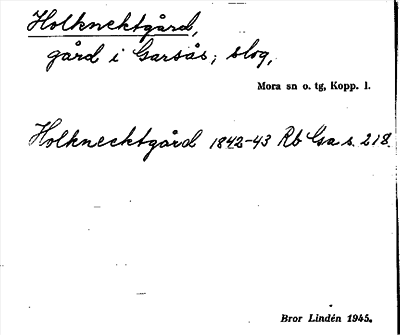 Holknektgård,
gård i Garsås; slog,
Mora sn o. tg, Kopp. l.
Holknecktgård 1842-43 Rb Gsa s. 218.
Bror Lindén 1945.